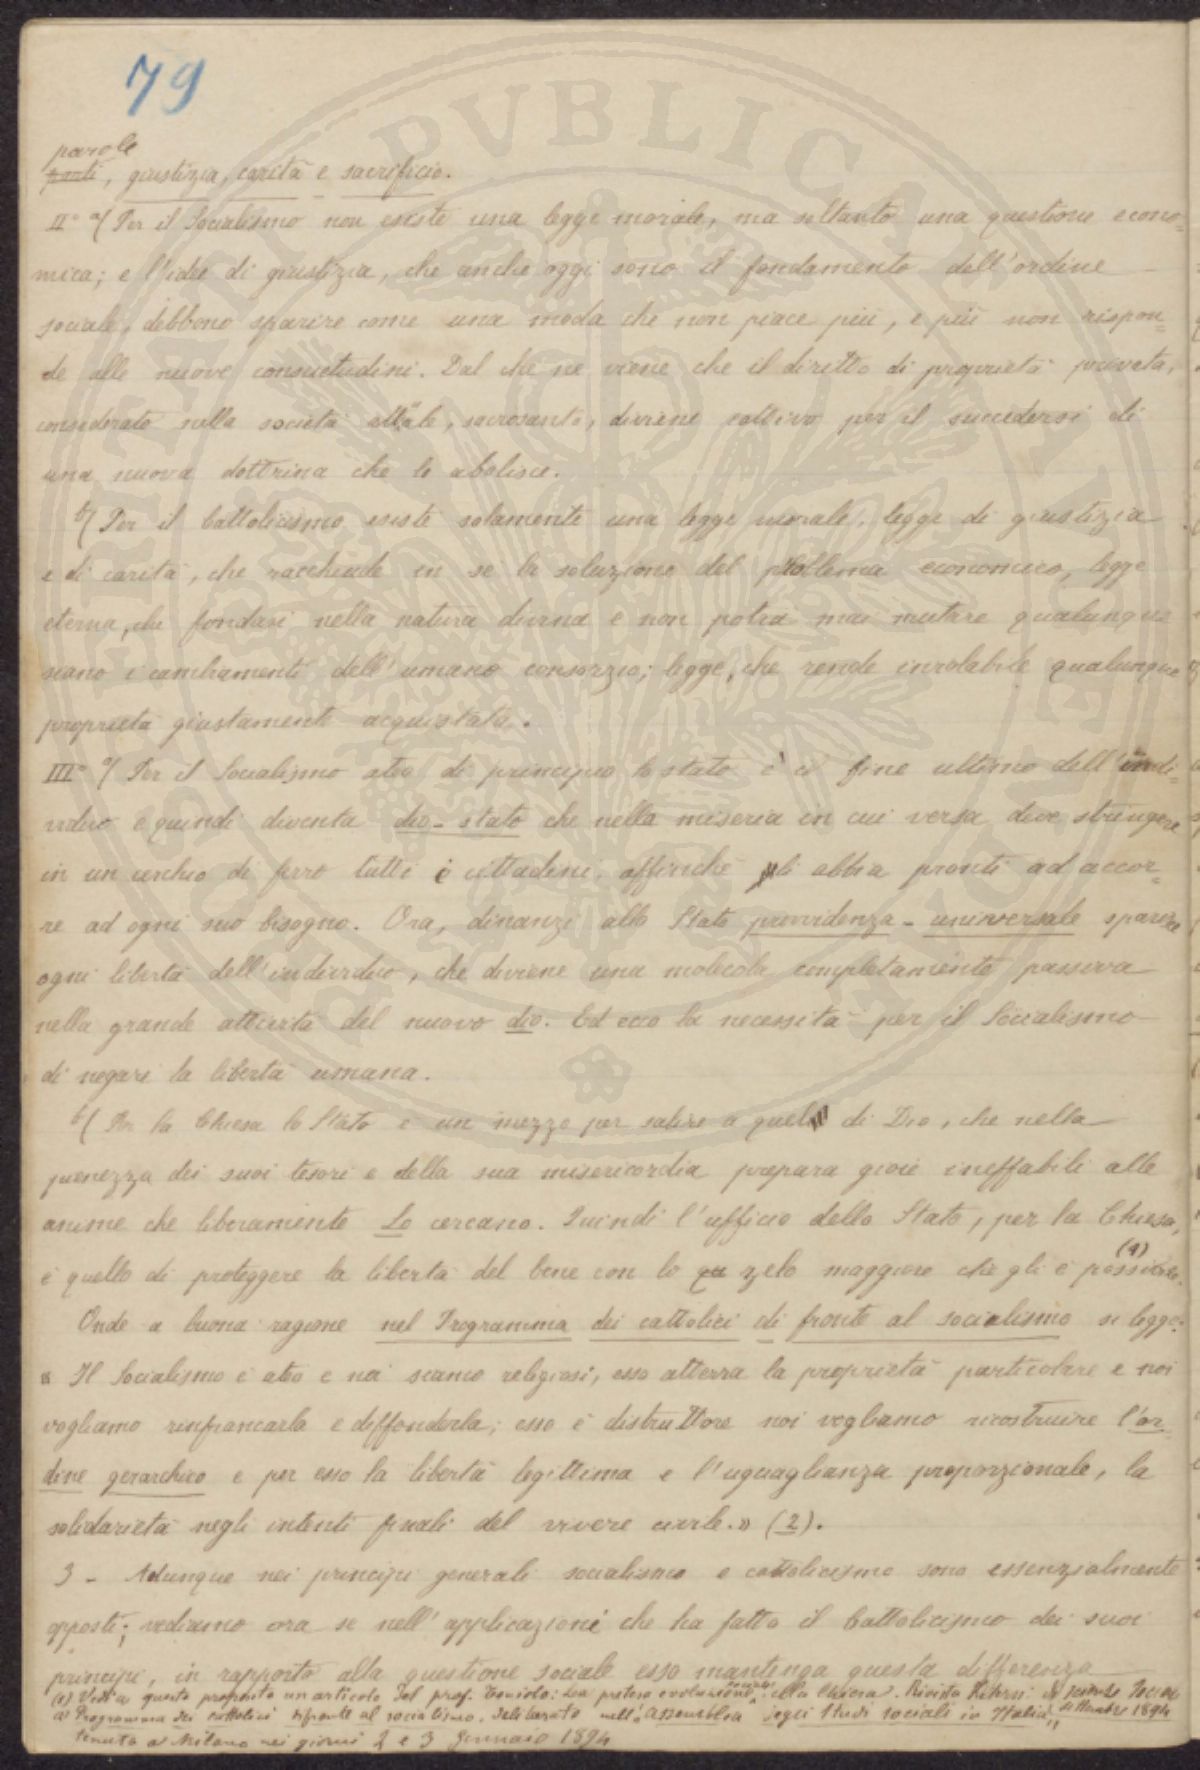 79
parole
ponti, giustizia, carità e sacrificio.
II° a/ Per il Socialismo non esiste una legge morale, ma soltanto una questione econo=
mica; e l'idee di giustizia, che anche oggi sono il fondamento dell'ordine
sociale, debbono sparire come una moda che non piace più, e più non rispon=
de alle nuove consuetudini. Dal che ne viene che il diritto di proprietà privata,
considerato nella società attuale, sacrosanto, diviene cattivo per il succedersi di
una nuova dottrina che lo abolisce.
b/ Per il Cattolicismo esiste solamente una legge morale, legge di giustizia
e di carità, che racchiude in se la soluzione del problema economico, legge
eterna, che fondasi nella natura divina e non potrà mai mutare qualunque
siano i cambiamenti dell'umano consorzio; legge, che rende inviolabile qualunque
proprietà giustamente acquistata.
III° a/ Per il Socialismo ateo di principio lo stato è il fine ultimo dell'indi=
viduo e quindi diventa dio-stato che nella miseria in cui versa deve stringere
in un cerchio di ferro tutti i cittadini, affinchè li abbia pronti ad accor=
re ad ogni suo bisogno. Ora, dinanzi allo Stato provvidenza-universale sparisce
ogni libertà dell'individuo, che diviene una molecola completamente passiva
nella grande attività del nuovo dio. Ed ecco la necessità per il Socialismo
di negare la libertà umana.
b/ Per la Chiesa lo Stato è un mezzo per salire a quel di Dio, che nella
pienezza dei suoi tesori e della sua misericordia prepara gioie ineffabili alle
anime che liberamente Lo cercano. Quindi l'ufficio dello Stato, per la Chiesa,
è quello di proteggere la libertà del bene con lo zelo maggiore che gli è possibile. (1)
Onde a buona ragione nel Programma dei cattolici di fronte al socialismo si legge:
« Il Socialismo è ateo e noi siamo religiosi, esso atterra la proprietà particolare e noi
vogliamo rinfrancarla e diffonderla; esso è distruttore noi vogliamo ricostruire l'or=
dine gerarchico e per esso la libertà legittima e l'uguaglianza proporzionale, la
solidarietà negli intenti finali del vivere civile.» (2).
3 - Adunque nei principi generali socialismo e cattolicismo sono essenzialmente
opposti; vediamo ora se nell'applicazione che ha fatto il Cattolicismo dei suoi
principi, in rapporto alla questione sociale esso mantenga questa differenza
(1) Vedi a questo proposito un articolo del prof. Toniolo: La pretesa evoluzione sociale della Chiesa. Rivista Intern: di scienze Sociali
2) Programma dei cattolici di fronte al socialismo. deliberato nell'assemblea degli Studi sociali in Italia, Settembre 1894
tenuta a Milano nei giorni 2 e 3 Gennaio 1894